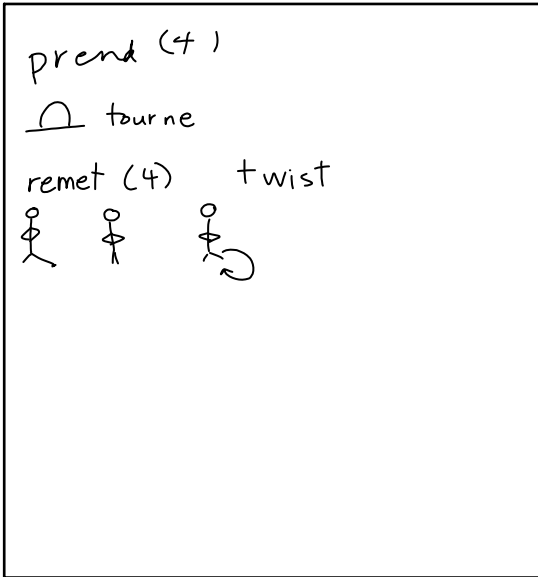 prend (4)
tourne
remet (4) twist